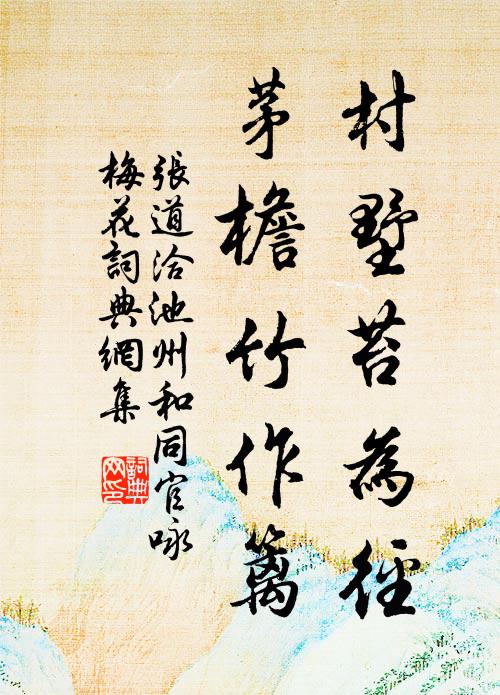 村墅苔為徑
茅檐竹作籬
張道洽池州和同官咏
梅花詞典網集
詞典网印